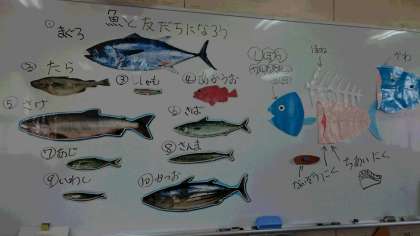 魚と友だちになろう
① まぐろ
② たら
③ ししゃも
④ あかうお
⑤ さけ
⑥ さば
⑦ あじ
⑧ さんま
⑨ いわし
⑩ かつお
ほね
かわ
ちあいにく